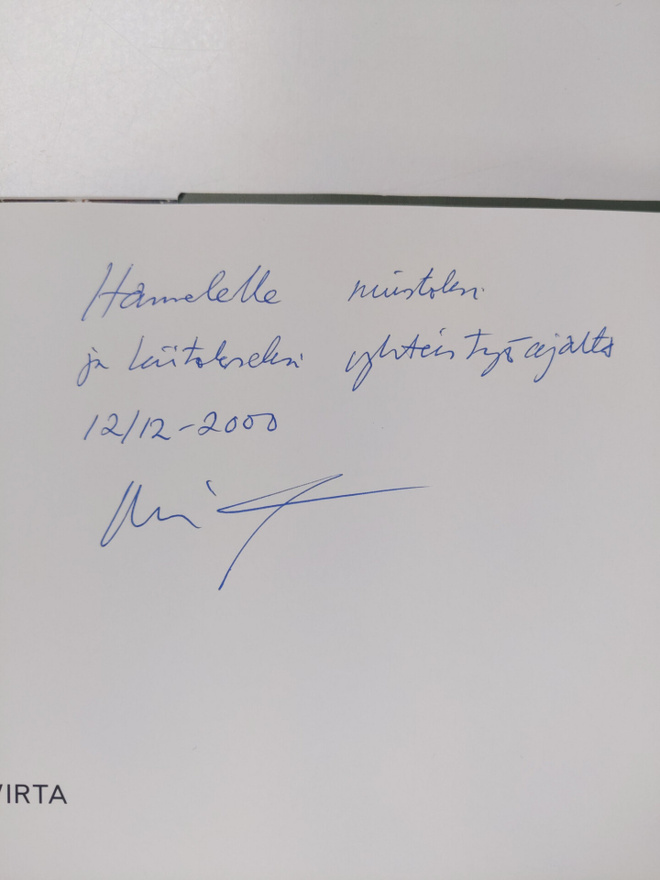 Hannelelle muistoksi
ja kiitokseksi yhteistyöajalta
12/12-2000
VIRTA